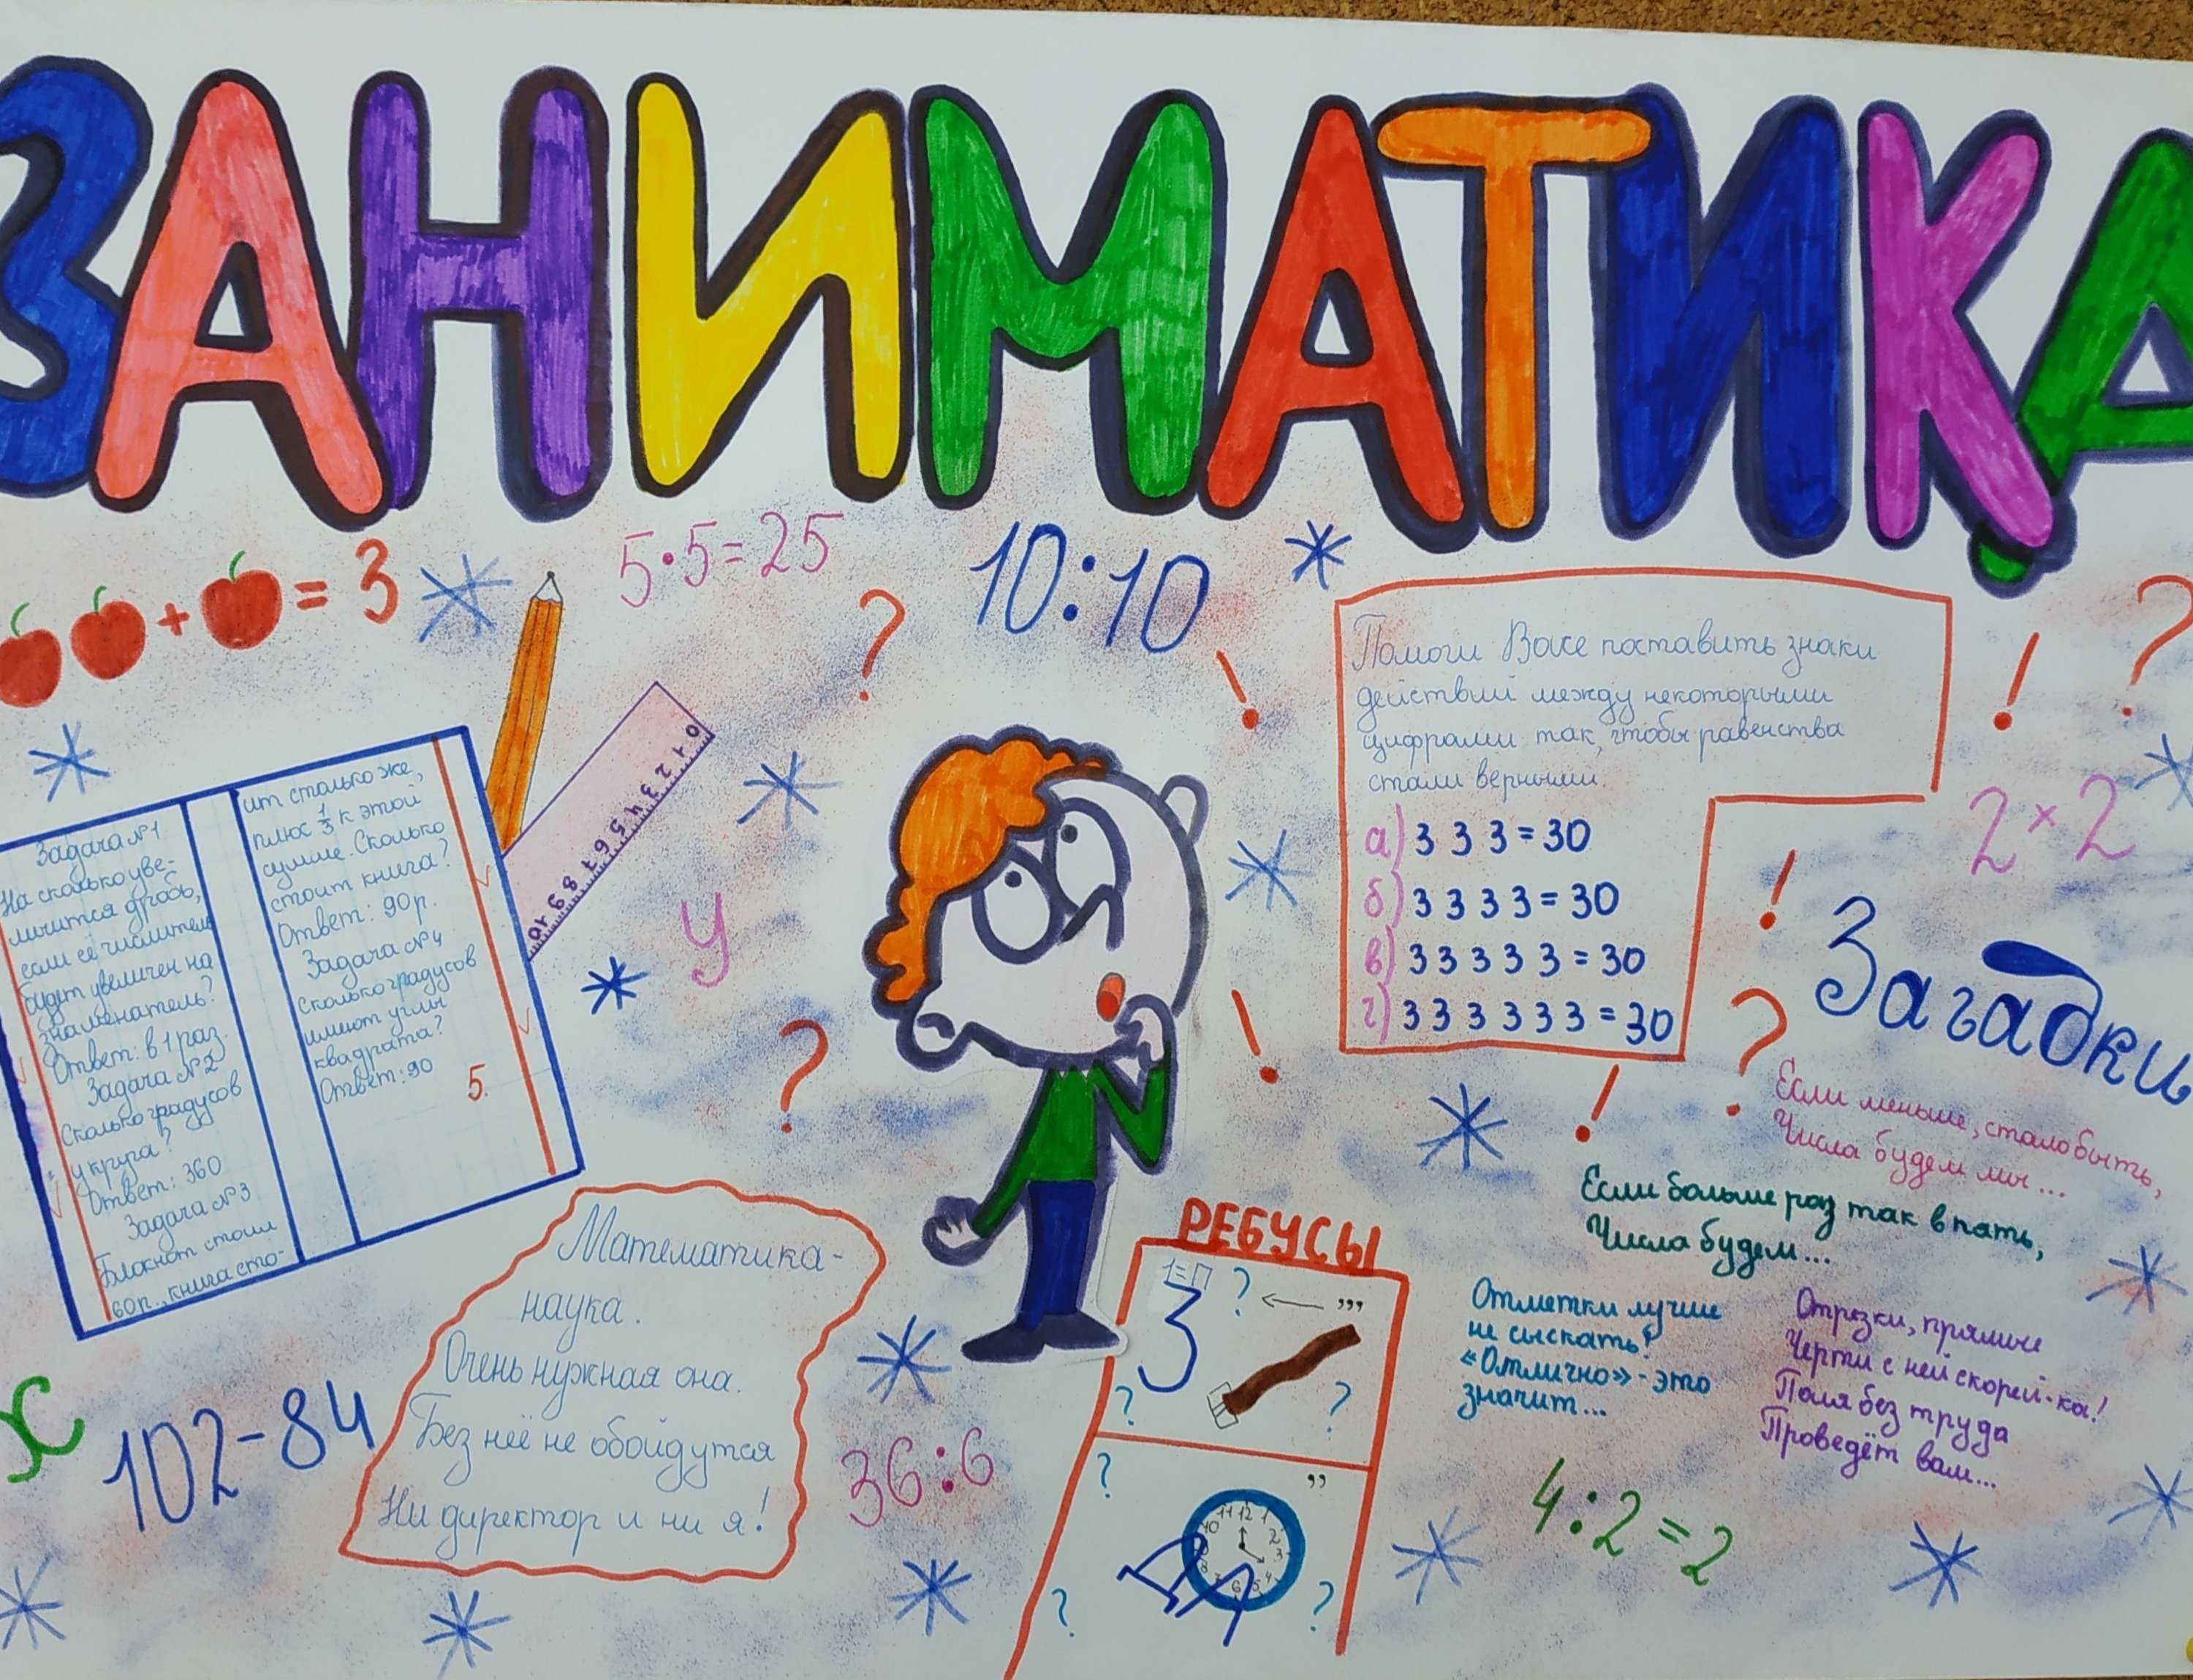 ЗАНИМАТИКА
+ = 3
5·5=25
10:10
?
!
!
?
0 1 2 3 4 5 6 7 8 9 10
Задача №1
На сколько уве-
личится дробь,
если её числитель
будет увеличен на
знаменатель?
Ответ: в 1 раз.
Задача №2
Сколько градусов
у круга?
Ответ: 360
Задача №3
Блокнот стоил
60р., книга сто-
ит столько же,
плюс 1/3 к этой
сумме. Сколько
стоит книга?
Ответ: 90р.
Задача №4
Сколько градусов
имеют углы
квадрата?
Ответ: 90
5.
У
?
!
Помоги Васе поставить знаки
действий между некоторыми
цифрами так, чтобы равенства
стали верными.
а) 3 3 3 = 30
б) 3 3 3 3 = 30
в) 3 3 3 3 3 = 30
г) 3 3 3 3 3 3 = 30
2×2
!
?
!
Загадки
Если меньше, стало быть,
Числа будем мы...
Если больше раз так в пать,
Числа будем...
Отметки лучше
не сыскать!
«Отлично» - это
значит...
Отрезки, прямые
Черти с ней скорей-ка!
Поля без труда
Проведёт вам...
4:2=2
х
102-84
Математика-
наука.
Очень нужная она.
Без неё не обойдутся
Ни директор и ни я!
36:6
РЕБУСЫ
1=П
3 ? ← ,,,
? ?
? ,,
11 12 1
10 2
3
8 4
7 6 5
? ?